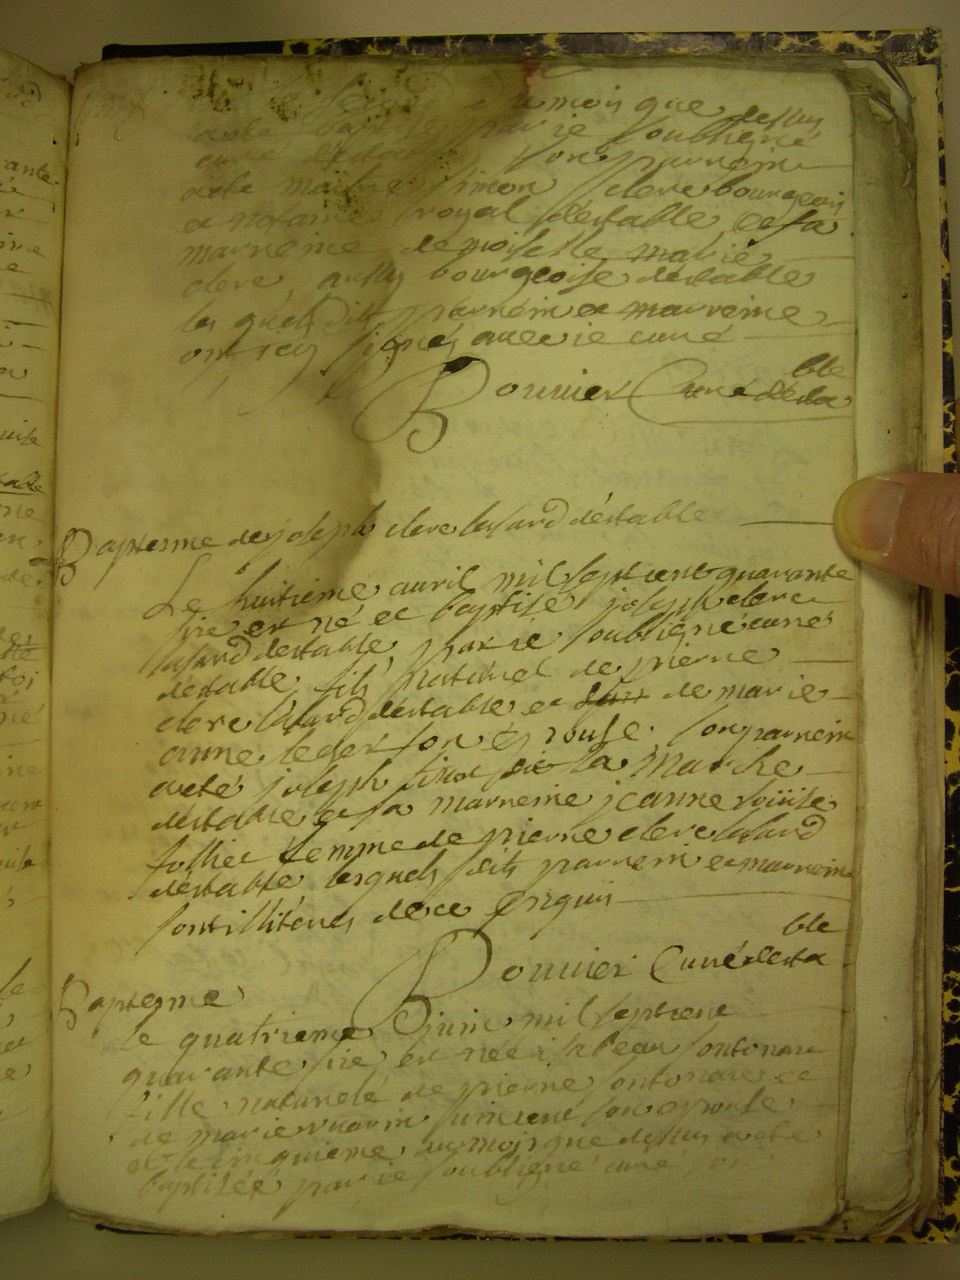 du mois que dessus
a été baptisé par je soubsigné
curé destable son parrein
a été maitre simon clerc bourgeois
et notaire royal d'estable et sa
marreine demoiselle marie
clerc aussy bourgeoise destable
les quels dits parrein et marreine
ont icy signés avec je curé
Bouvier Curé desta
ble
Baptesme de joseph clerc lasard d'estable
Le huitieme avril mil sept cent quarante
sixe est né et baptisé joseph clerc
lasard destable par je soubsigné curé
destable fils naturel de pierre
clerc lasard destable et de marie
anne leder son épouse son parrein
a été joseph finot dit la Marche
destable et sa marreine jeanne loüise
follie femme de pierre clerc lasard
destable lesquels dits parrein et marreine
sont illiterés de ce enquis
Bouvier Curé desta
ble
Baptesme
le quatrieme juin mil sept cent
quarante sixe est née isabeau
fille naturele de pierre et
de marie vincent son epouse
et le cinquieme du mois que dessus a été
baptisée par je soubsigné curé